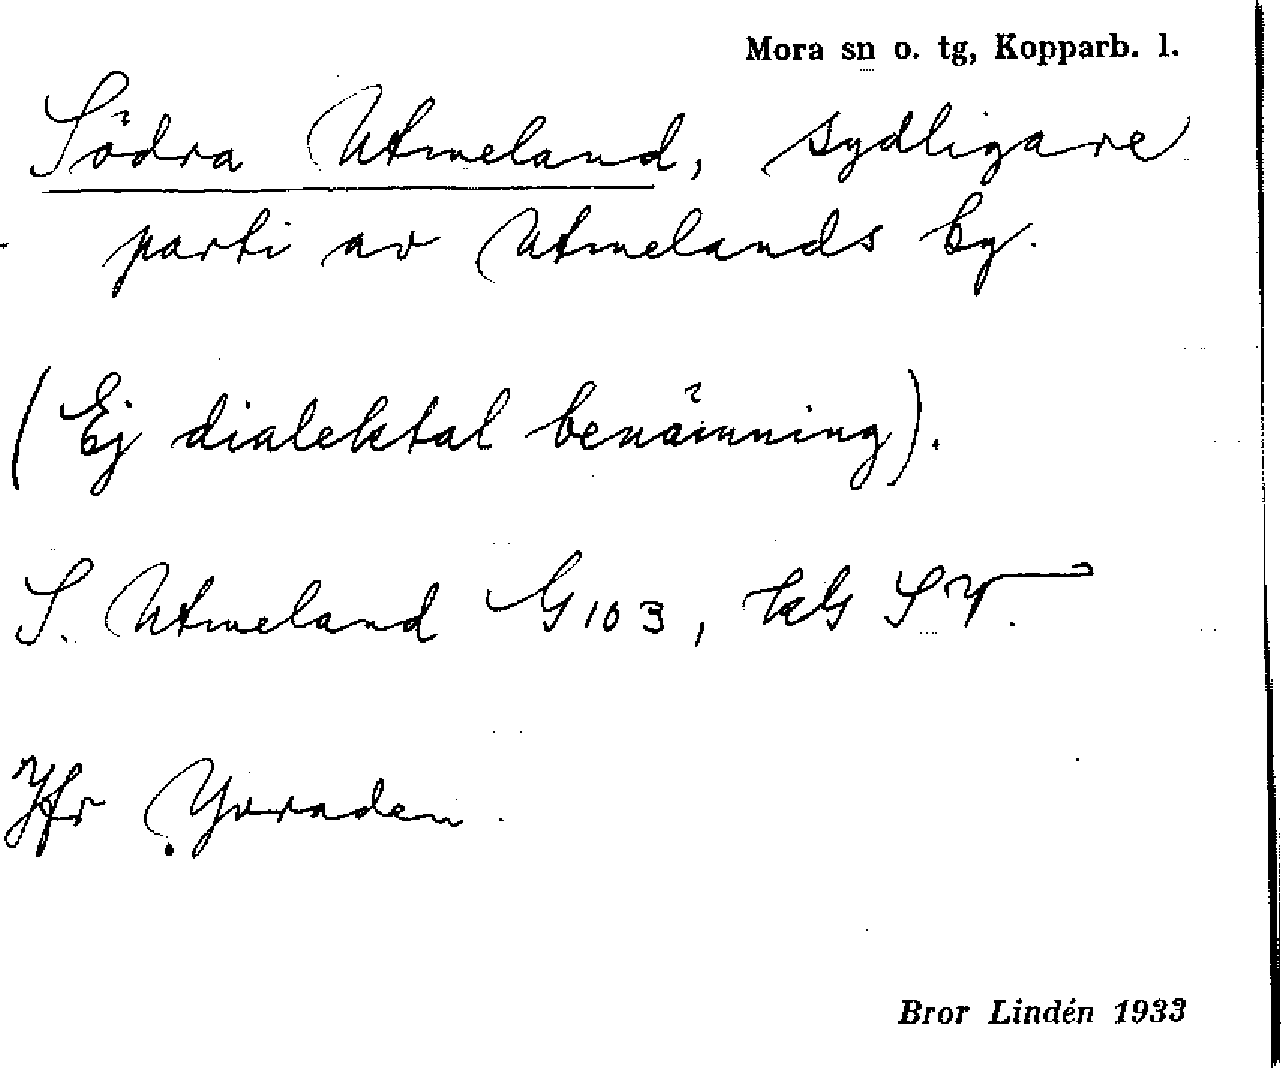 Mora sn o. tg, Kopparb. l.
Södra Utmeland, sydligare
parti av Utmelands by.
(Ej dialektal benämning).
S. Utmeland G 103,
Jfr
Bror Lindén 1933